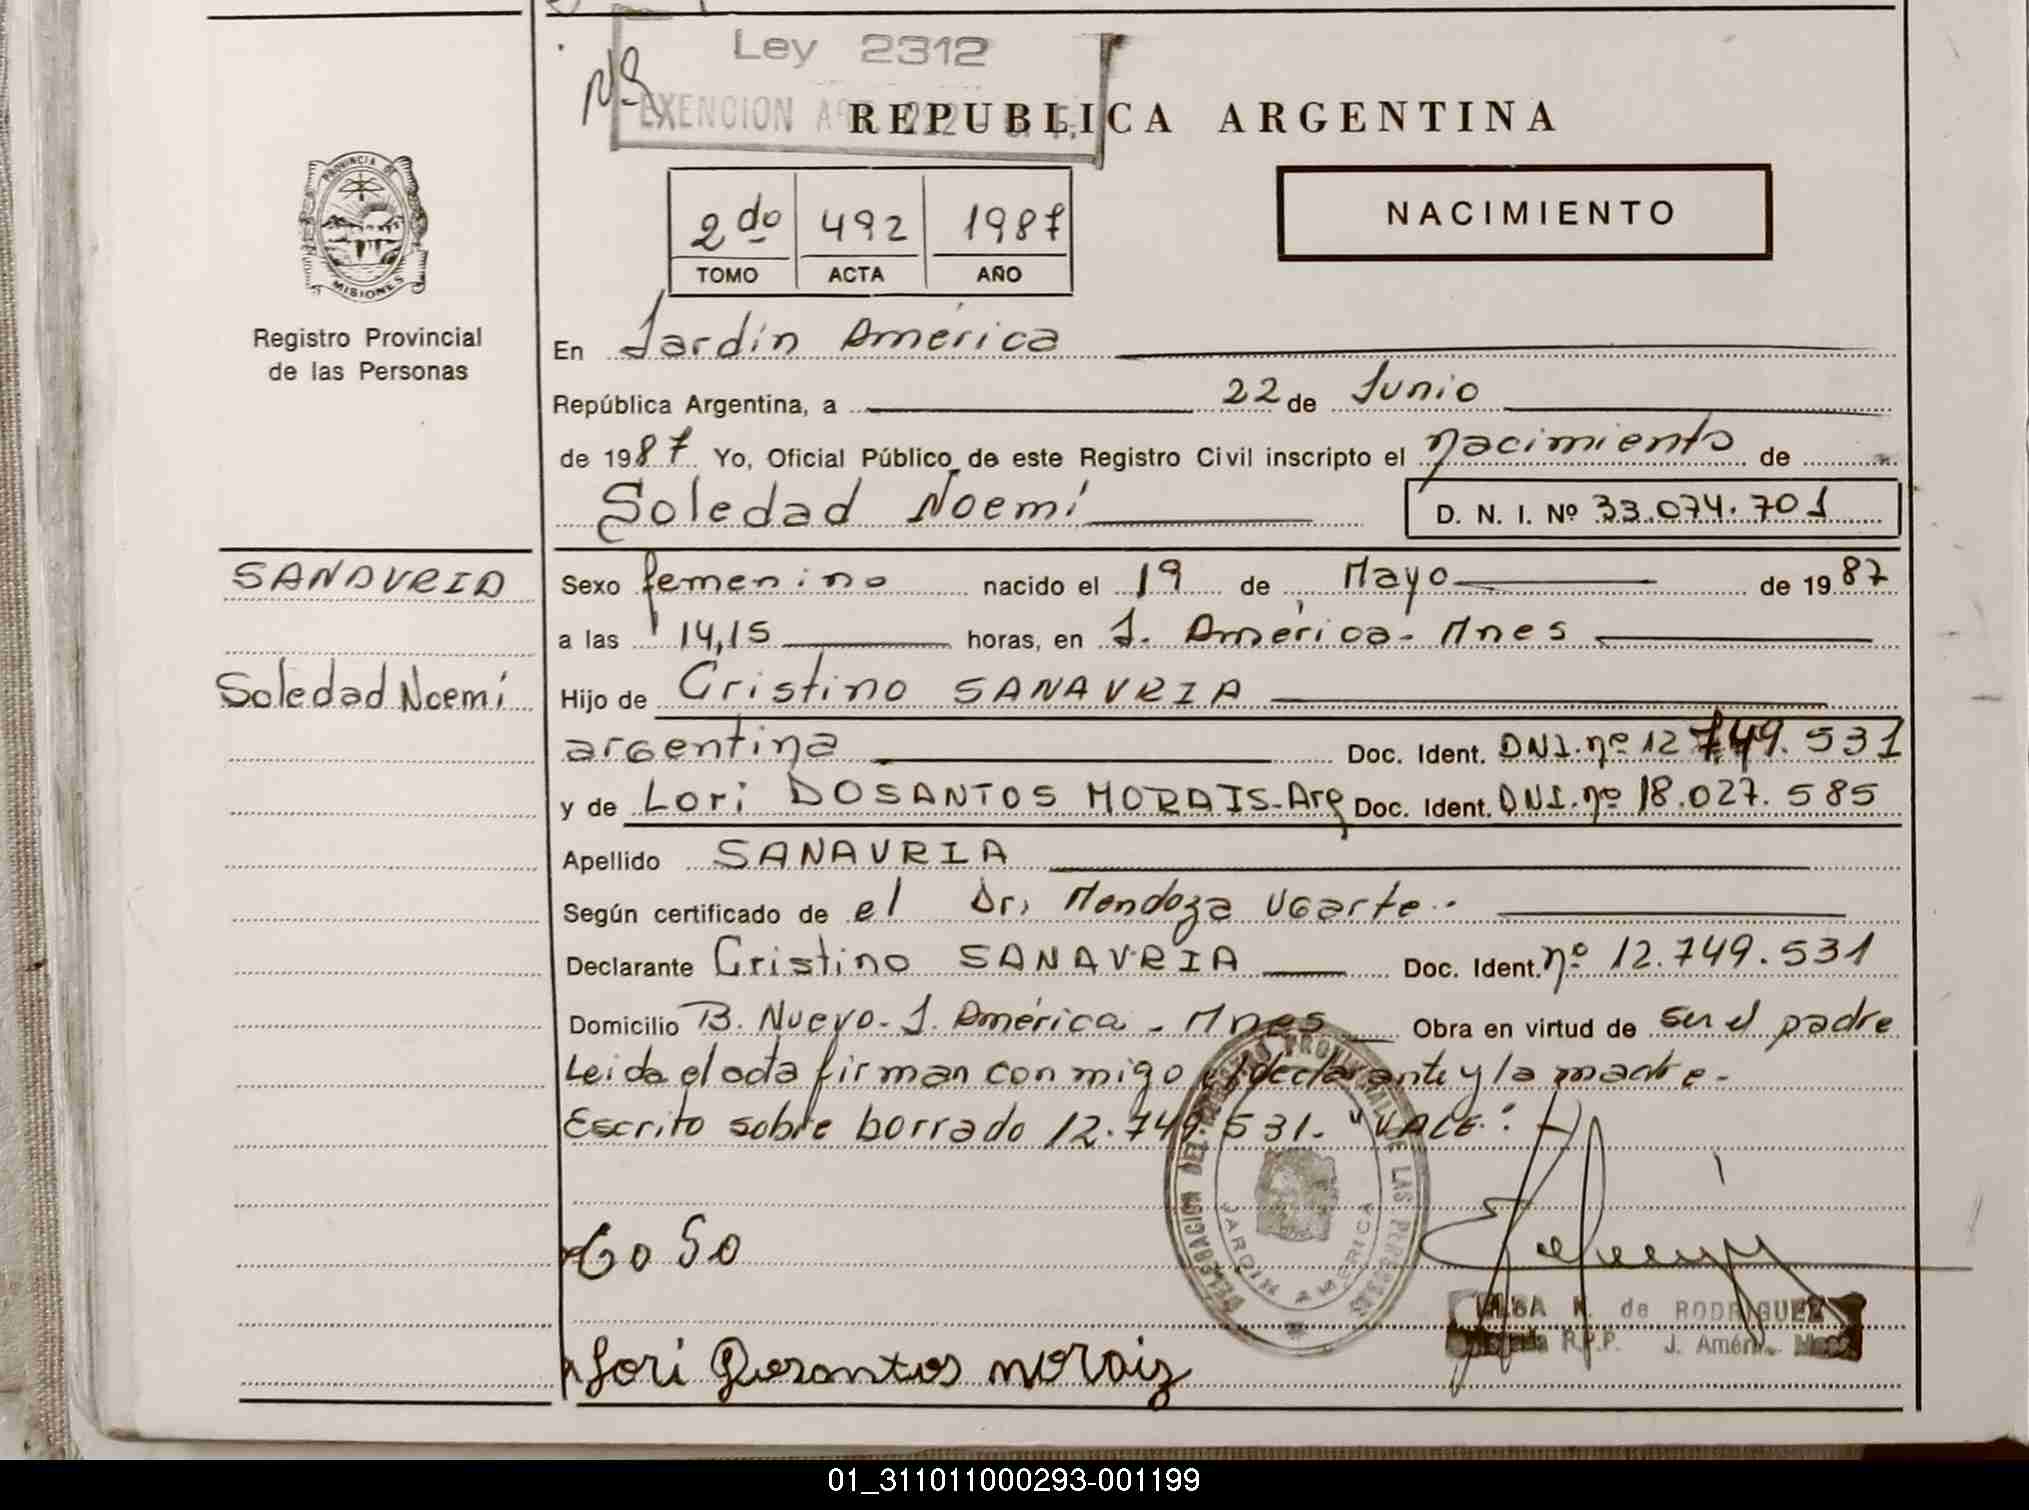 Ley 2312
Nº
EXENCION
REPUBLICA ARGENTINA
PROVINCIA DE
MISIONES
2do 492 1987
TOMO ACTA AÑO
NACIMIENTO
Registro Provincial
de las Personas
En Jardín América
República Argentina, a 22 de Junio
de 1987 Yo, Oficial Público de este Registro Civil inscripto el nacimiento de
Soledad Noemí D. N. I. Nº 33.074.701
SANAVRIA
Soledad Noemí
Sexo femenino nacido el 19 de Mayo de 1987
a las 14,15 horas, en J. América - Mnes
Hijo de Cristino SANAVRIA
argentina Doc. Ident. DNI. nº 12.749.531
y de Lori DOSANTOS MORAIS - Arg Doc. Ident. DNI. nº 18.027.585
Apellido SANAVRIA
Según certificado de el Dr. Mendoza Ugarte.
Declarante Cristino SANAVRIA Doc. Ident. nº 12.749.531
Domicilio B. Nuevo - J. América - Mnes Obra en virtud de ser el padre
Leida el acta firman conmigo el declarante y la madre -
Escrito sobre borrado 12.749.531. "VALE":
DELEGACION DEL REGISTRO PROVINCIAL DE LAS PERSONAS
JARDIN AMERICA
de RODRIGUEZ
R.P.P. J. Amér.
Lori Dosantos morais
01_311011000293-001199